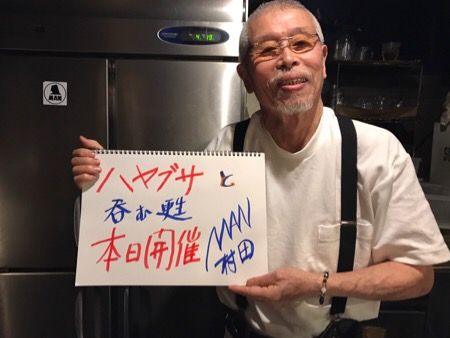 ハヤブサと
呑む甦
本日開催
MAN
村田
MAN